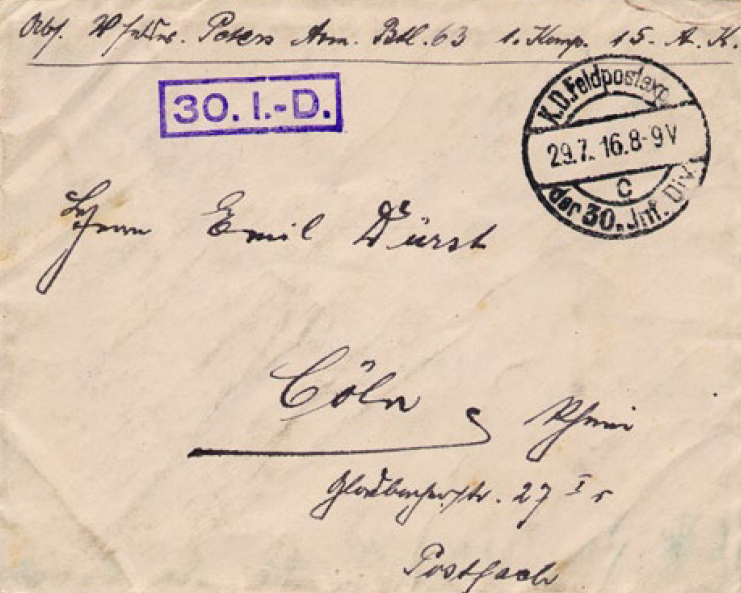 Abs. Peters Arm. Btl. 63 1. Komp. 15. A. K.
30. I.-D.
K.D.Feldpostexp.
29.7. 16.8-9V
c
der 30. Inf. Div.
Herrn Emil Dürst
Cöln Rhein
27 I r
Postfach